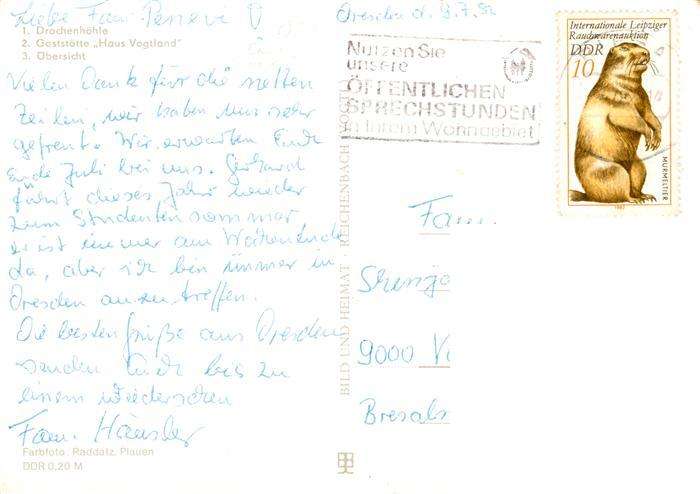 Liebe Fam.
1. Drachenhöhle
2. Gaststätte „Haus Vogtland"
3. Übersicht
Vielen Dank für die netten
Zeilen, wir haben uns sehr
gefreut. Wir erwarten Euch
Ende Juli bei uns. Gerhard
fährt dieses Jahr wieder
zum Studentensommer
er ist immer am Wochenende
da, aber ich bin immer in
Dresden anzutreffen.
Die besten Grüße aus Dresden
senden Euch bis zu
einem Wiedersehen
Fam. Häusler
Farbfoto. Raddatz, Plauen
DDR 0,20 M
BILD UND HEIMAT · REICHENBACH
Dresden d. 9.7.82
Nutzen Sie
unsere
ÖFFENTLICHEN
SPRECHSTUNDEN
in Ihrem Wohngebiet
Internationale Leipziger
Rauchwarenauktion
DDR
10
MURMELTIER
1982
Fam.
9000